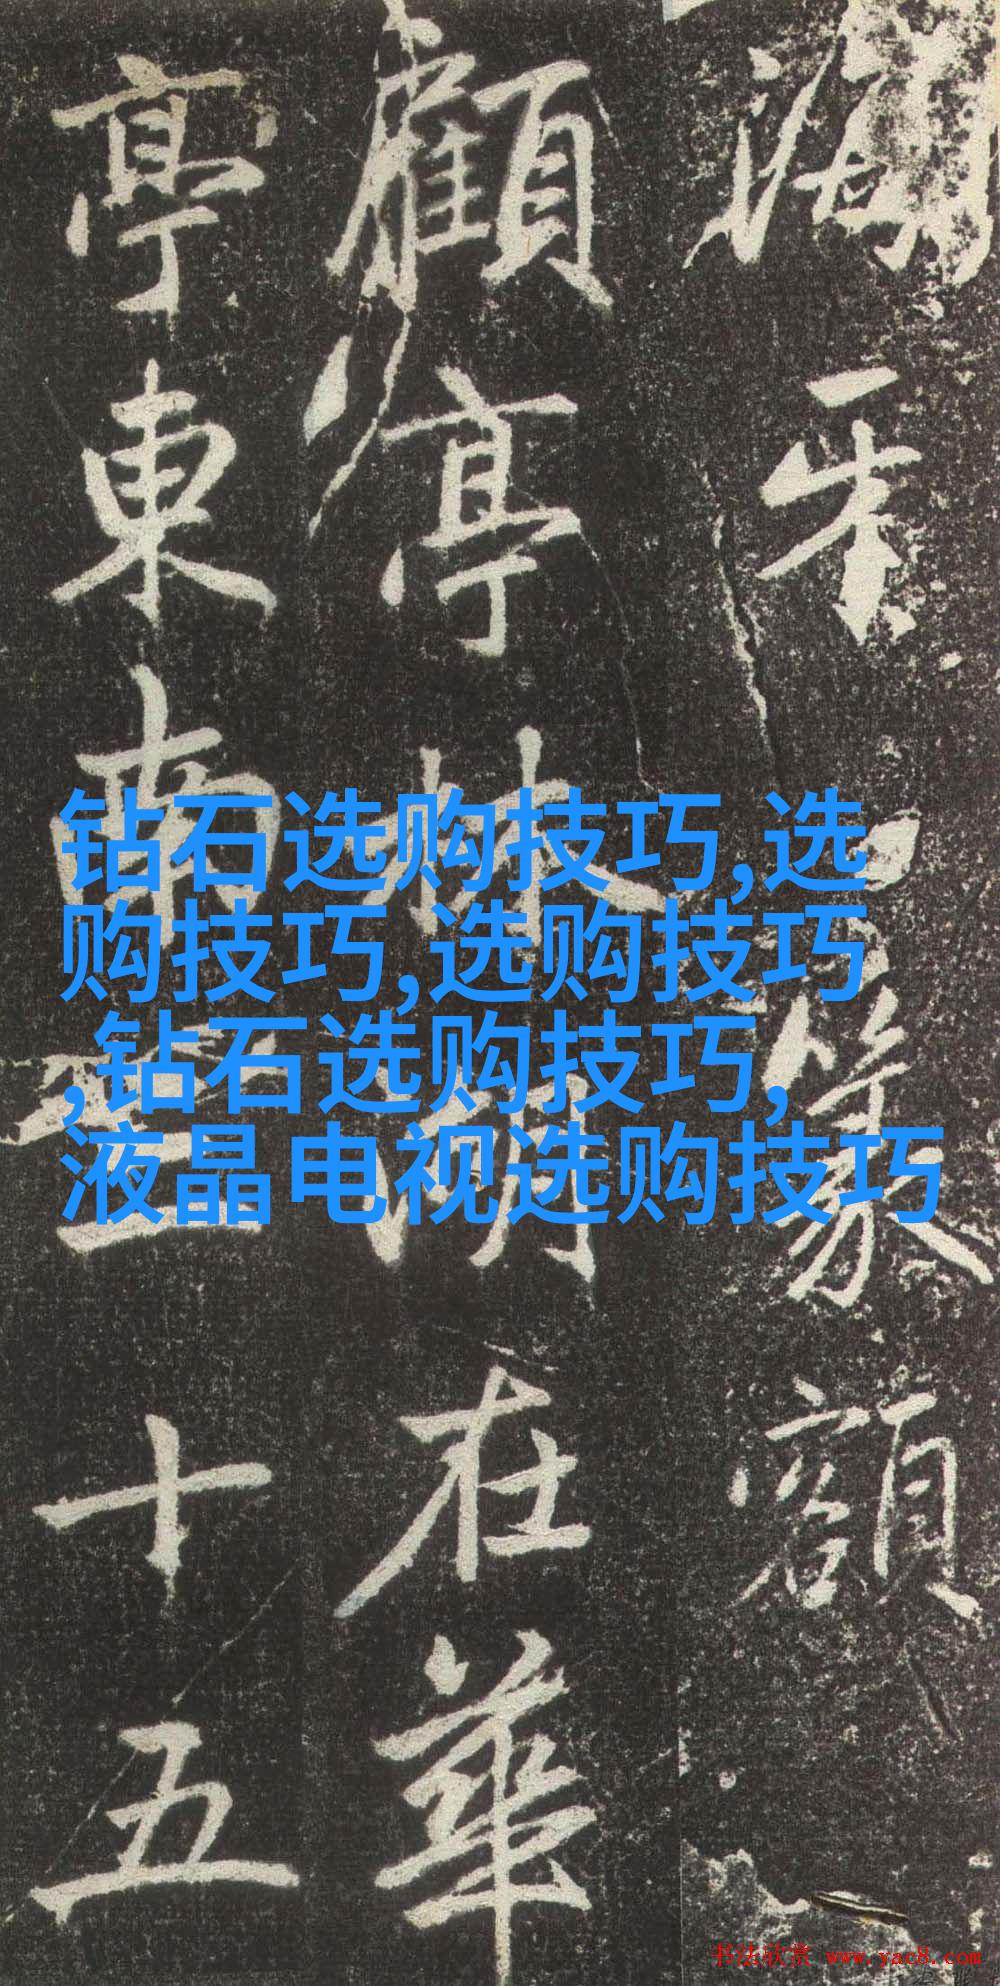 篆額
顧亭林湖在華
亭東南三十五
钻石选购技巧,选
购技巧,选购技巧
,钻石选购技巧,
液晶电视选购技巧
书法欣赏 www.yac8.com